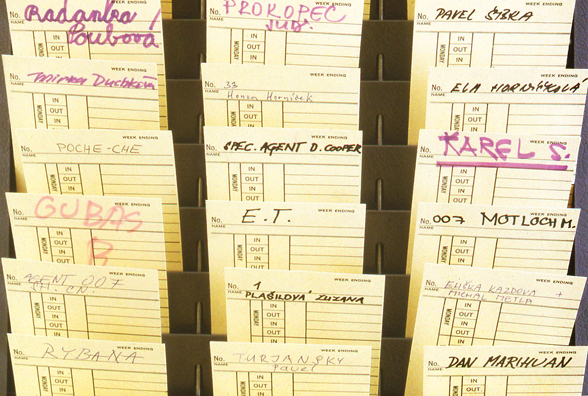 No. Radanka /
Poubová
NAME
IN
OUT
IN
MONDAY
No. PROKOPEC
NAME JUDr.
IN
OUT
IN
MONDAY
No. PAVEL ŠIBRA
NAME
IN
OUT
IN
MONDAY
WEEK ENDING
No.
NAME
IN
OUT
IN
MONDAY
WEEK ENDING
No. 33
NAME Honza Horníček
IN
OUT
IN
MONDAY
WEEK ENDING
No. ELA HORNÍČKOLÁ
NAME
IN
OUT
MONDAY
WEEK ENDING
No. POCHE-CHE
NAME
IN
OUT
IN
MONDAY
WEEK ENDING
No. SPEC. AGENT D. COOPER
NAME
IN
OUT
IN
MONDAY
WEEK ENDING
No. KAREL S.
NAME
IN
OUT
IN
MONDAY
WEEK ENDING
No. GUBAS
NAME
IN
OUT
IN
MONDAY
WEEK ENDING
No. E.T.
NAME
IN
OUT
IN
MONDAY
WEEK ENDING
No. 007 MOTLOCH M.
NAME
IN
OUT
IN
MONDAY
WEEK ENDING
No. AGENT 007
NAME
IN
OUT
IN
MONDAY
WEEK ENDING
No. 1
NAME PLAŠILOVÁ ZUZANA
IN
OUT
IN
MONDAY
WEEK ENDING
No. ELIŠKA KAZDOVA +
NAME MICHAL METLA
IN
OUT
IN
MONDAY
WEEK ENDING
No. RYBANA
NAME
IN
OUT
IN
MONDAY
WEEK ENDING
No. TURJANSKY
NAME Pavel
IN
OUT
MONDAY
WEEK ENDING
No. DAN MARIHUAN
NAME
IN
OUT
MONDAY